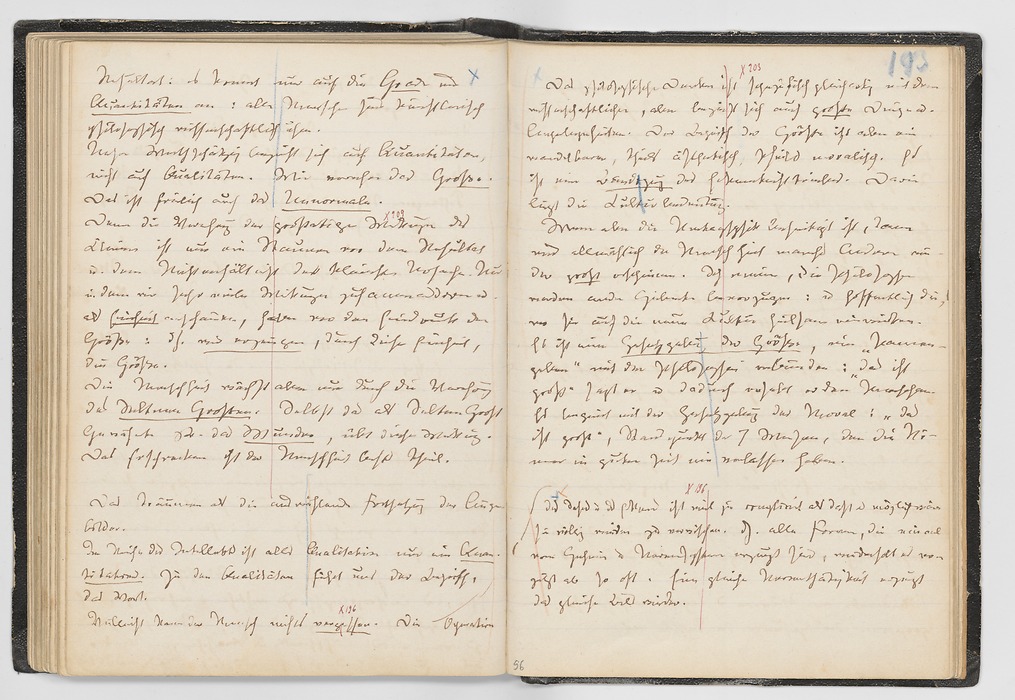 Resultat: es kommt nur auf die Grade und
Quantitäten an: alle Menschen sind künstlerisch
philosophisch wissenschaftlich usw.
Unsre Werthschätzung bezieht sich auf Quantitäten,
nicht auf Qualitäten. Wir verehren das Große.
Das ist freilich auch das Unnormale.
Denn die Verehrung der großartigen Wirkungen des
Kleinen ist nur ein Staunen vor dem Resultat
u. dem Mißverhältniß der kleinsten Ursache. Nur
indem wir sehr viele Wirkungen zusammenaddiren u.
als Einheit anschauen, haben wir den Eindruck der
Größe: dh. wir erzeugen, durch diese Einheit,
die Größe.
Die Menschheit wächst aber nur durch die Verehrung
des Seltenen Großen. Selbst das als Selten Groß
Gewähnte zB. das Wunder, übt diese Wirkung.
Das Erschrecken ist der Menschheit bestes Theil.
Das Träumen als die auswählende Fortsetzung der Augen
bilder.
Im Reiche des Intellekts ist alles Qualitative nur ein Quan-
titatives. Zu den Qualitäten führt uns der Begriff,
das Wort.
X 196
Vielleicht kann der Mensch nichts vergessen. Die Operation
56
193
X 203
Das philosophische Denken ist spezifisch gleichartig mit dem
wissenschaftlichen, aber bezieht sich auf große Dinge u.
Angelegenheiten. Der Begriff der Größe ist aber ein
wandelbarer, theils ästhetisch, theils moralisch. Es
ist eine Bändigung des Erkenntnißtriebes. Darin
liegt die Kulturbedeutung.
Wenn aber die Metaphysik beseitigt ist, dann
wird allmählich der Menschheit manches Andere wie-
der groß erscheinen. Ich meine, die Philosophen
werden andre Gebiete bevorzugen: u hoffentlich die,
wo sie auf die neue Kultur heilsam einwirken.
Es ist eine Gesetzgebung der Größe, ein „Namen-
geben" mit der Philosophie verbunden: „das ist
groß" sagt er u dadurch erhebt er den Menschen.
Es beginnt mit der Gesetzgebung der Moral: „das
ist groß", Standpunkt der 7 Weisen, den die Rö-
mer in guter Zeit nie verlassen haben.
X 196
ist viel zu complicirt als daß es möglich wäre
sie völlig wieder zu verwischen. dh. alle Formen, die einmal
vom Gehirn u Nervensystem erzeugt sind, wiederholt es von
jetzt ab so oft. Eine gleiche Nerventhätigkeit erzeugt
das gleiche Bild wieder.